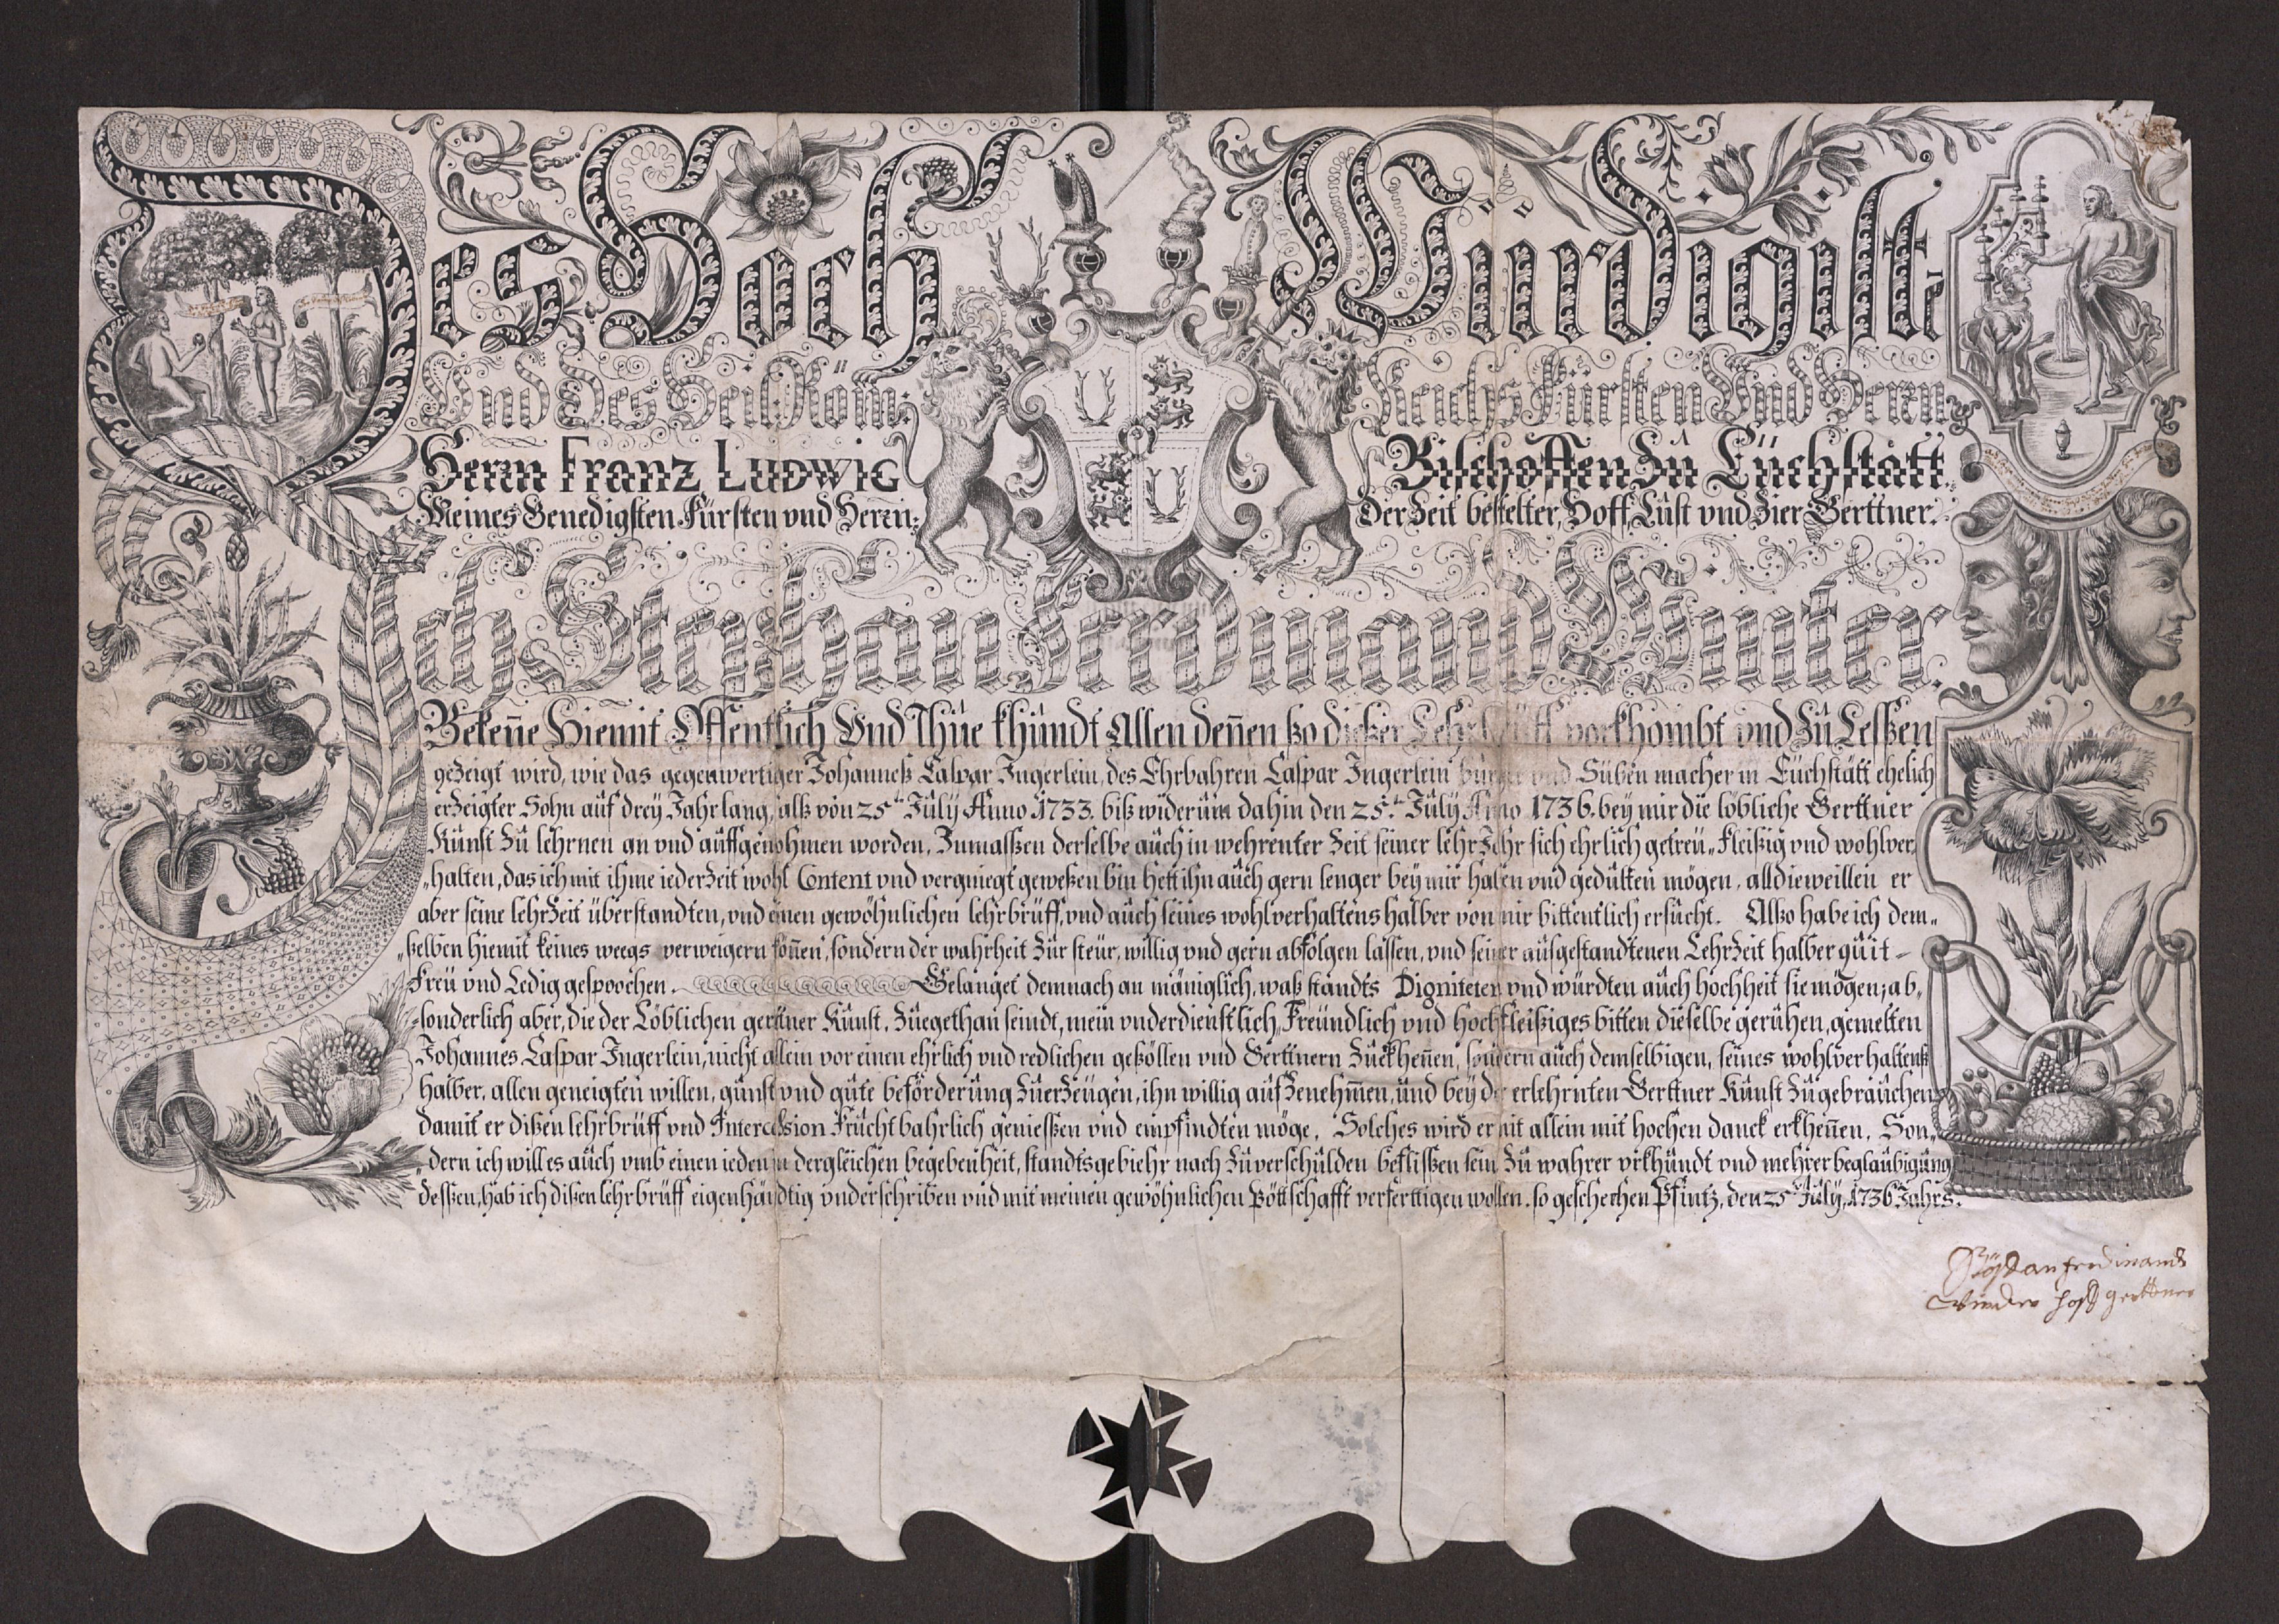 Des Hoch Würdigist
Und Des Heil: Röm: Reichs Fürsten Und Herrn
Herrn Franz Ludwig Bischoffen Zu Eüchstätt.
Meines Genedigsten Fürsten vnd Herrn: Der Zeit bestelter, Hoff Lust vnd Zier Gerttner.
Ich Stephan Ferdinand Winter.
Bekeñe Hiemit Offentlich Und Thue khundt Allen deñen so dießer Lehrbrüff vorkhombt vnd Zu Lessen
gezeigt wird, wie das gegenwertiger Johanneß Caspar Ingerlein, des Ehrbahren Caspar Ingerlein vnd Süben macher in Eüchstätt ehelich
erzeigter Sohn auf drey Jahr lang, alß von 25ten July Anno 1733. biß widerüm dahin den 25.ten July Anno 1736. bey mir die löbliche Gerttner
Kunst Zu lehrnen an vnd auffgenohmen worden. Inmassen derselbe auch in wehrenter Zeit seiner lehr Jahr sich ehrlich getreu„ Fleißig vnd wohlver„
„halten, das ich mit ihme iederzeit wohl Content vnd vergniegt geweßen bin hett ihn auch gern lenger bey mir haben vnd gedulten mögen, alldieweillen er
aber seine lehrzeit überstandten, vnd einen gewöhnlichen lehrbrüff, vnd auch seines wohlverhaltens halber von mir bittentlich ersucht. Also habe ich dem„
„selben hiemit keines weegs verweigern köñen, sondern der wahrheit Zür steur, willig vnd gern abfolgen lassen, vnd seiner ausgestandtenen Lehrzeit halber quit-
Freu vnd Ledig gespoochen. Gelanget demnach an mäniglich, waß standts Digniteten vnd würdten auch hochheit sie mögen; ab„
„sonderlich aber, die der Löblichen gertner Kunst, Zuegethan seindt, mein vnderdienstlich, Freundlich vnd hochfleißiges bitten dieselbe geruhen, gemelten
Johannes Caspar Ingerlein, nicht allein vor einen ehrlich vnd redlichen gesöllen vnd Gerttnern Zuekheñen, sondern auch demselbigen, seines wohlverhaltenß
halber, allen geneigten willen, gunst vnd gute beförderung Zuerzeugen, ihn willig aufzenehm̃en, und bey der erlehrnten Gerttner Kunst Zugebrauchen
damit er dißen lehrbrüff vnd Intercession Fruchtbahrlich geniessen vnd empfindten möge. Solches wird er nit allein mit hochen danck erkheñen. Son„
„dern ich will es auch vmb einen ieden in dergleichen begebenheit, standtsgebiehr nach Zu verschulden beflissen sein Zu wahrer vrkhundt vnd mehrer beglaubigung
dessen, hab ich dißen lehrbrüff eigenhändtig vnderschriben vnd mit meinen gewöhnlichen Pöttschafft verferttigen wollen. so geschechen Pfintz, den 25ten July, 1736. Jahrs.
ferdinand
Winder hoff gerttner